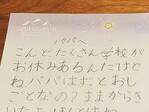 パパへ
こんど、たくさん学校が
お休みあるんだけど
ね、パパはずっとおし
ごとなの?ままからき